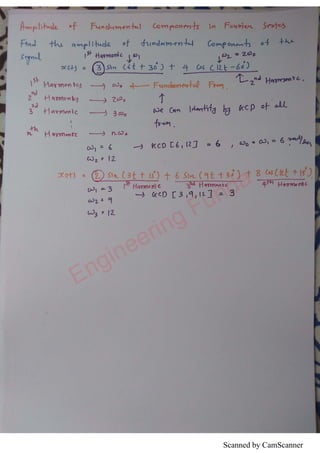 Amplitude of Fundamental Components in Fourier Series
Find the amplitude of fundamental Components of the
signal
1st Harmonic ↓ω1 ↓ω2 = 2ω0
x(t) = 3 Sin (6t + 30°) + 4 Cos (12t - 60°)
2nd Harmonic.
1st Harmonics → ω0 ← Fundamental Freq.
2nd Harmonics → 2ω0 ↑
3rd Harmonic → 3ω0 We Can Identify by GCD of all
freq.
nth Harmonic → nω0
ω1 = 6 → GCD [6, 12] = 6 , ω0 = ω1 = 6 rad/sec
ω2 = 12
x(t) = 2 Sin (3t + 15°) + 6 Sin (9t + 30°) + 8 Cos (12t + 15°)
1st Harmonic 3rd Harmonic 4th Harmonic
ω1 = 3 → GCD [3, 9, 12] = 3
ω2 = 9
ω3 = 12
Engineering
Scanned by CamScanner